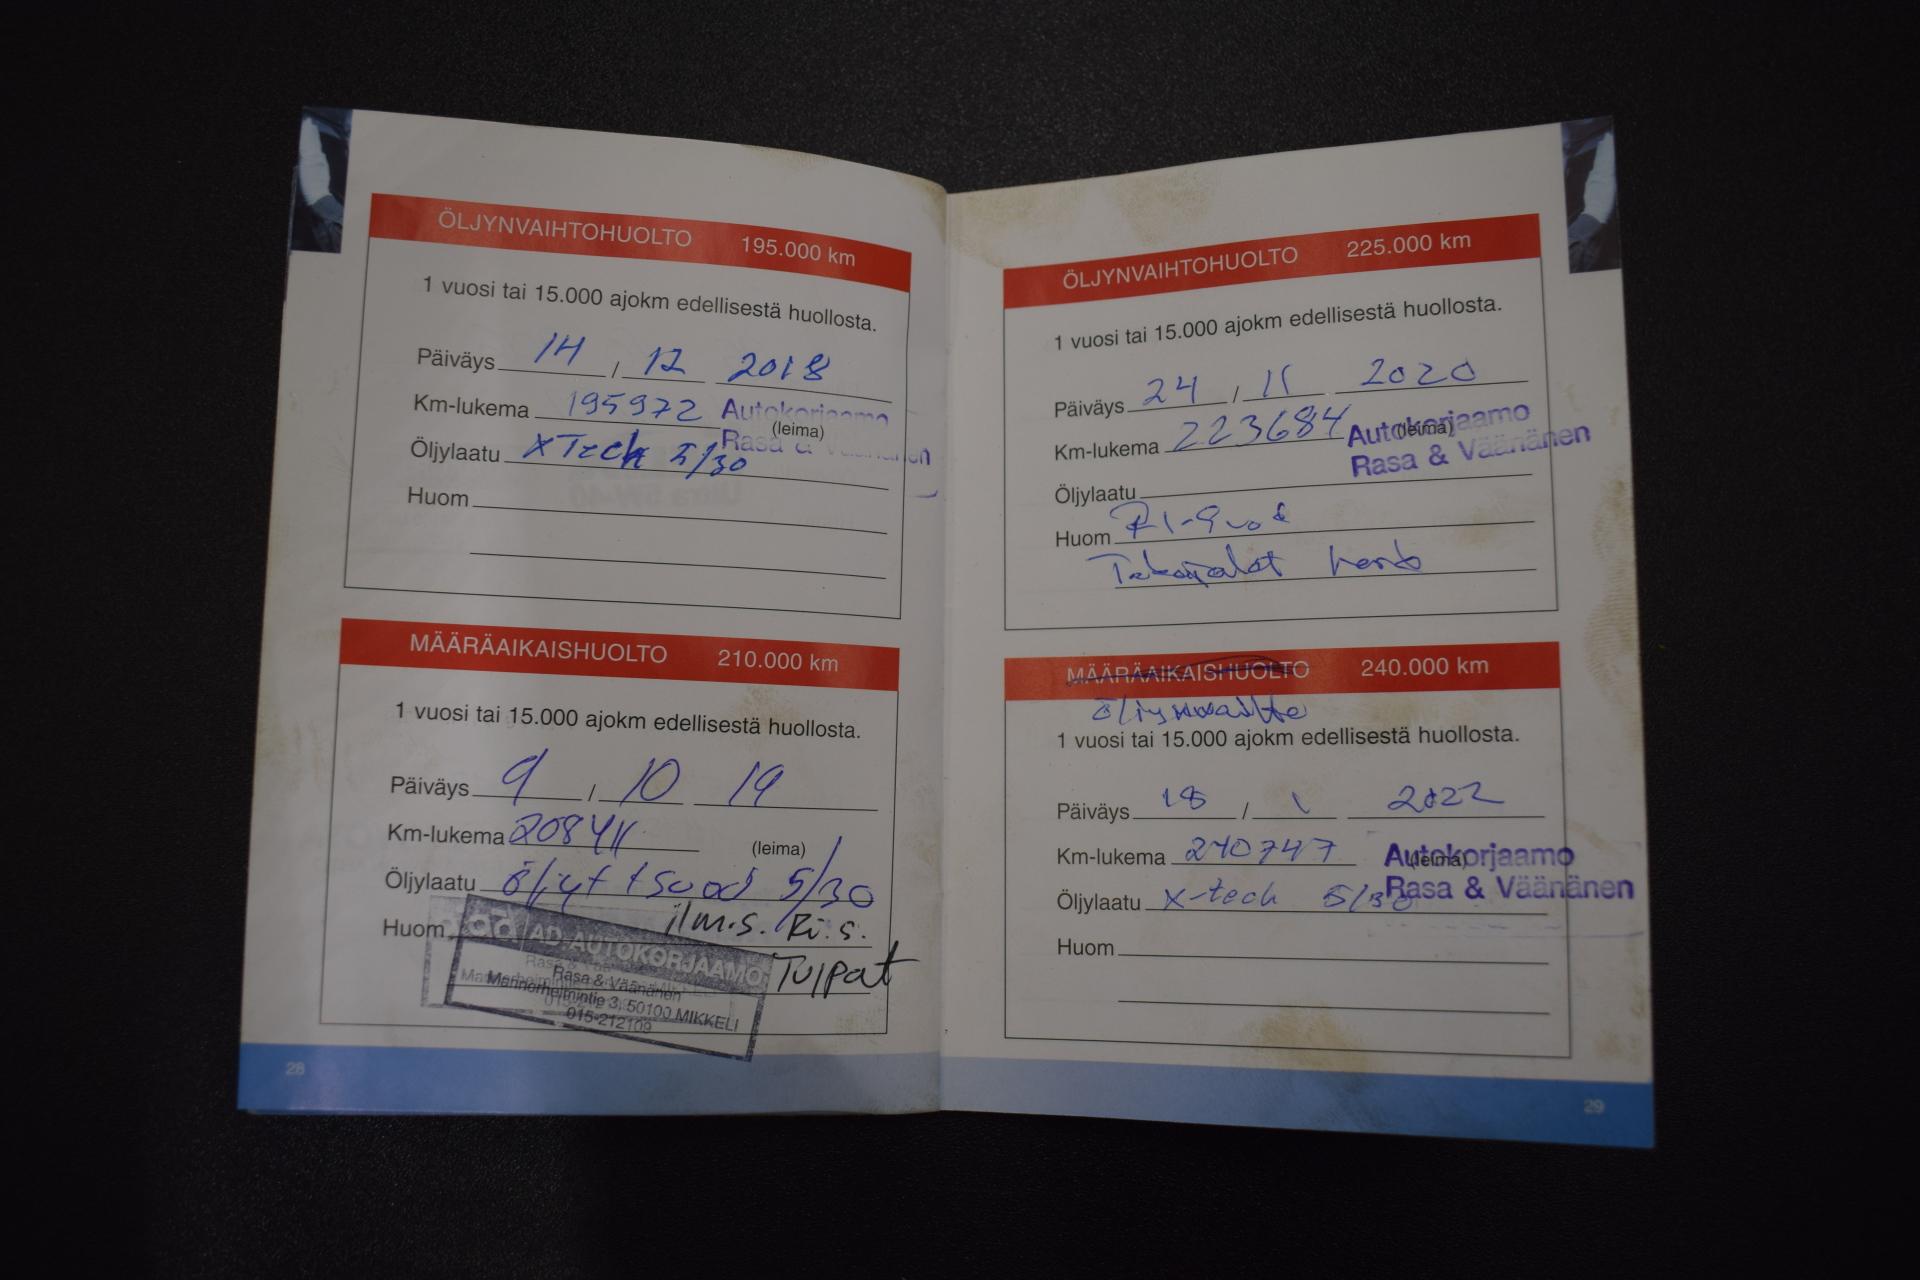 ÖLJYNVAIHTOHUOLTO 195.000 km
1 vuosi tai 15.000 ajokm edellisestä huollosta.
Päiväys 14 / 12 2018
Km-lukema 195972 Autokorjaamo
(leima)
Rasa & Väänänen
Öljylaatu XTech 5/30
Huom
MÄÄRÄAIKAISHUOLTO 210.000 km
1 vuosi tai 15.000 ajokm edellisestä huollosta.
Päiväys 9 / 10 19
Km-lukema 208411 (leima)
Öljylaatu öljyt + suod 5/30
Huom ilm.s. Ri.s.
Tulpat
AD AUTOKORJAAMO
Rasa & Väänänen
Mannerheimintie 3, 50100 MIKKELI
015-212109
28
ÖLJYNVAIHTOHUOLTO 225.000 km
1 vuosi tai 15.000 ajokm edellisestä huollosta.
Päiväys 24 / 11 2020
Km-lukema 223684 Autokorjaamo
(leima)
Rasa & Väänänen
Öljylaatu
Huom
MÄÄRÄAIKAISHUOLTO 240.000 km
öljynvaihto
1 vuosi tai 15.000 ajokm edellisestä huollosta.
Päiväys 18 / 1 2022
Km-lukema 240747 Autokorjaamo
(leima)
Öljylaatu X-tech 5/30 Rasa & Väänänen
Huom
29